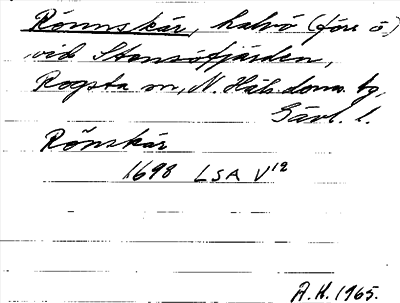 Rönnskär, halvö (före ö)
vid Stensöfjärden,
Rogsta sn, N. Häls. doms. tg,
Gävl. l.
Rönskär
1698 LSA V12
A.K. 1965.